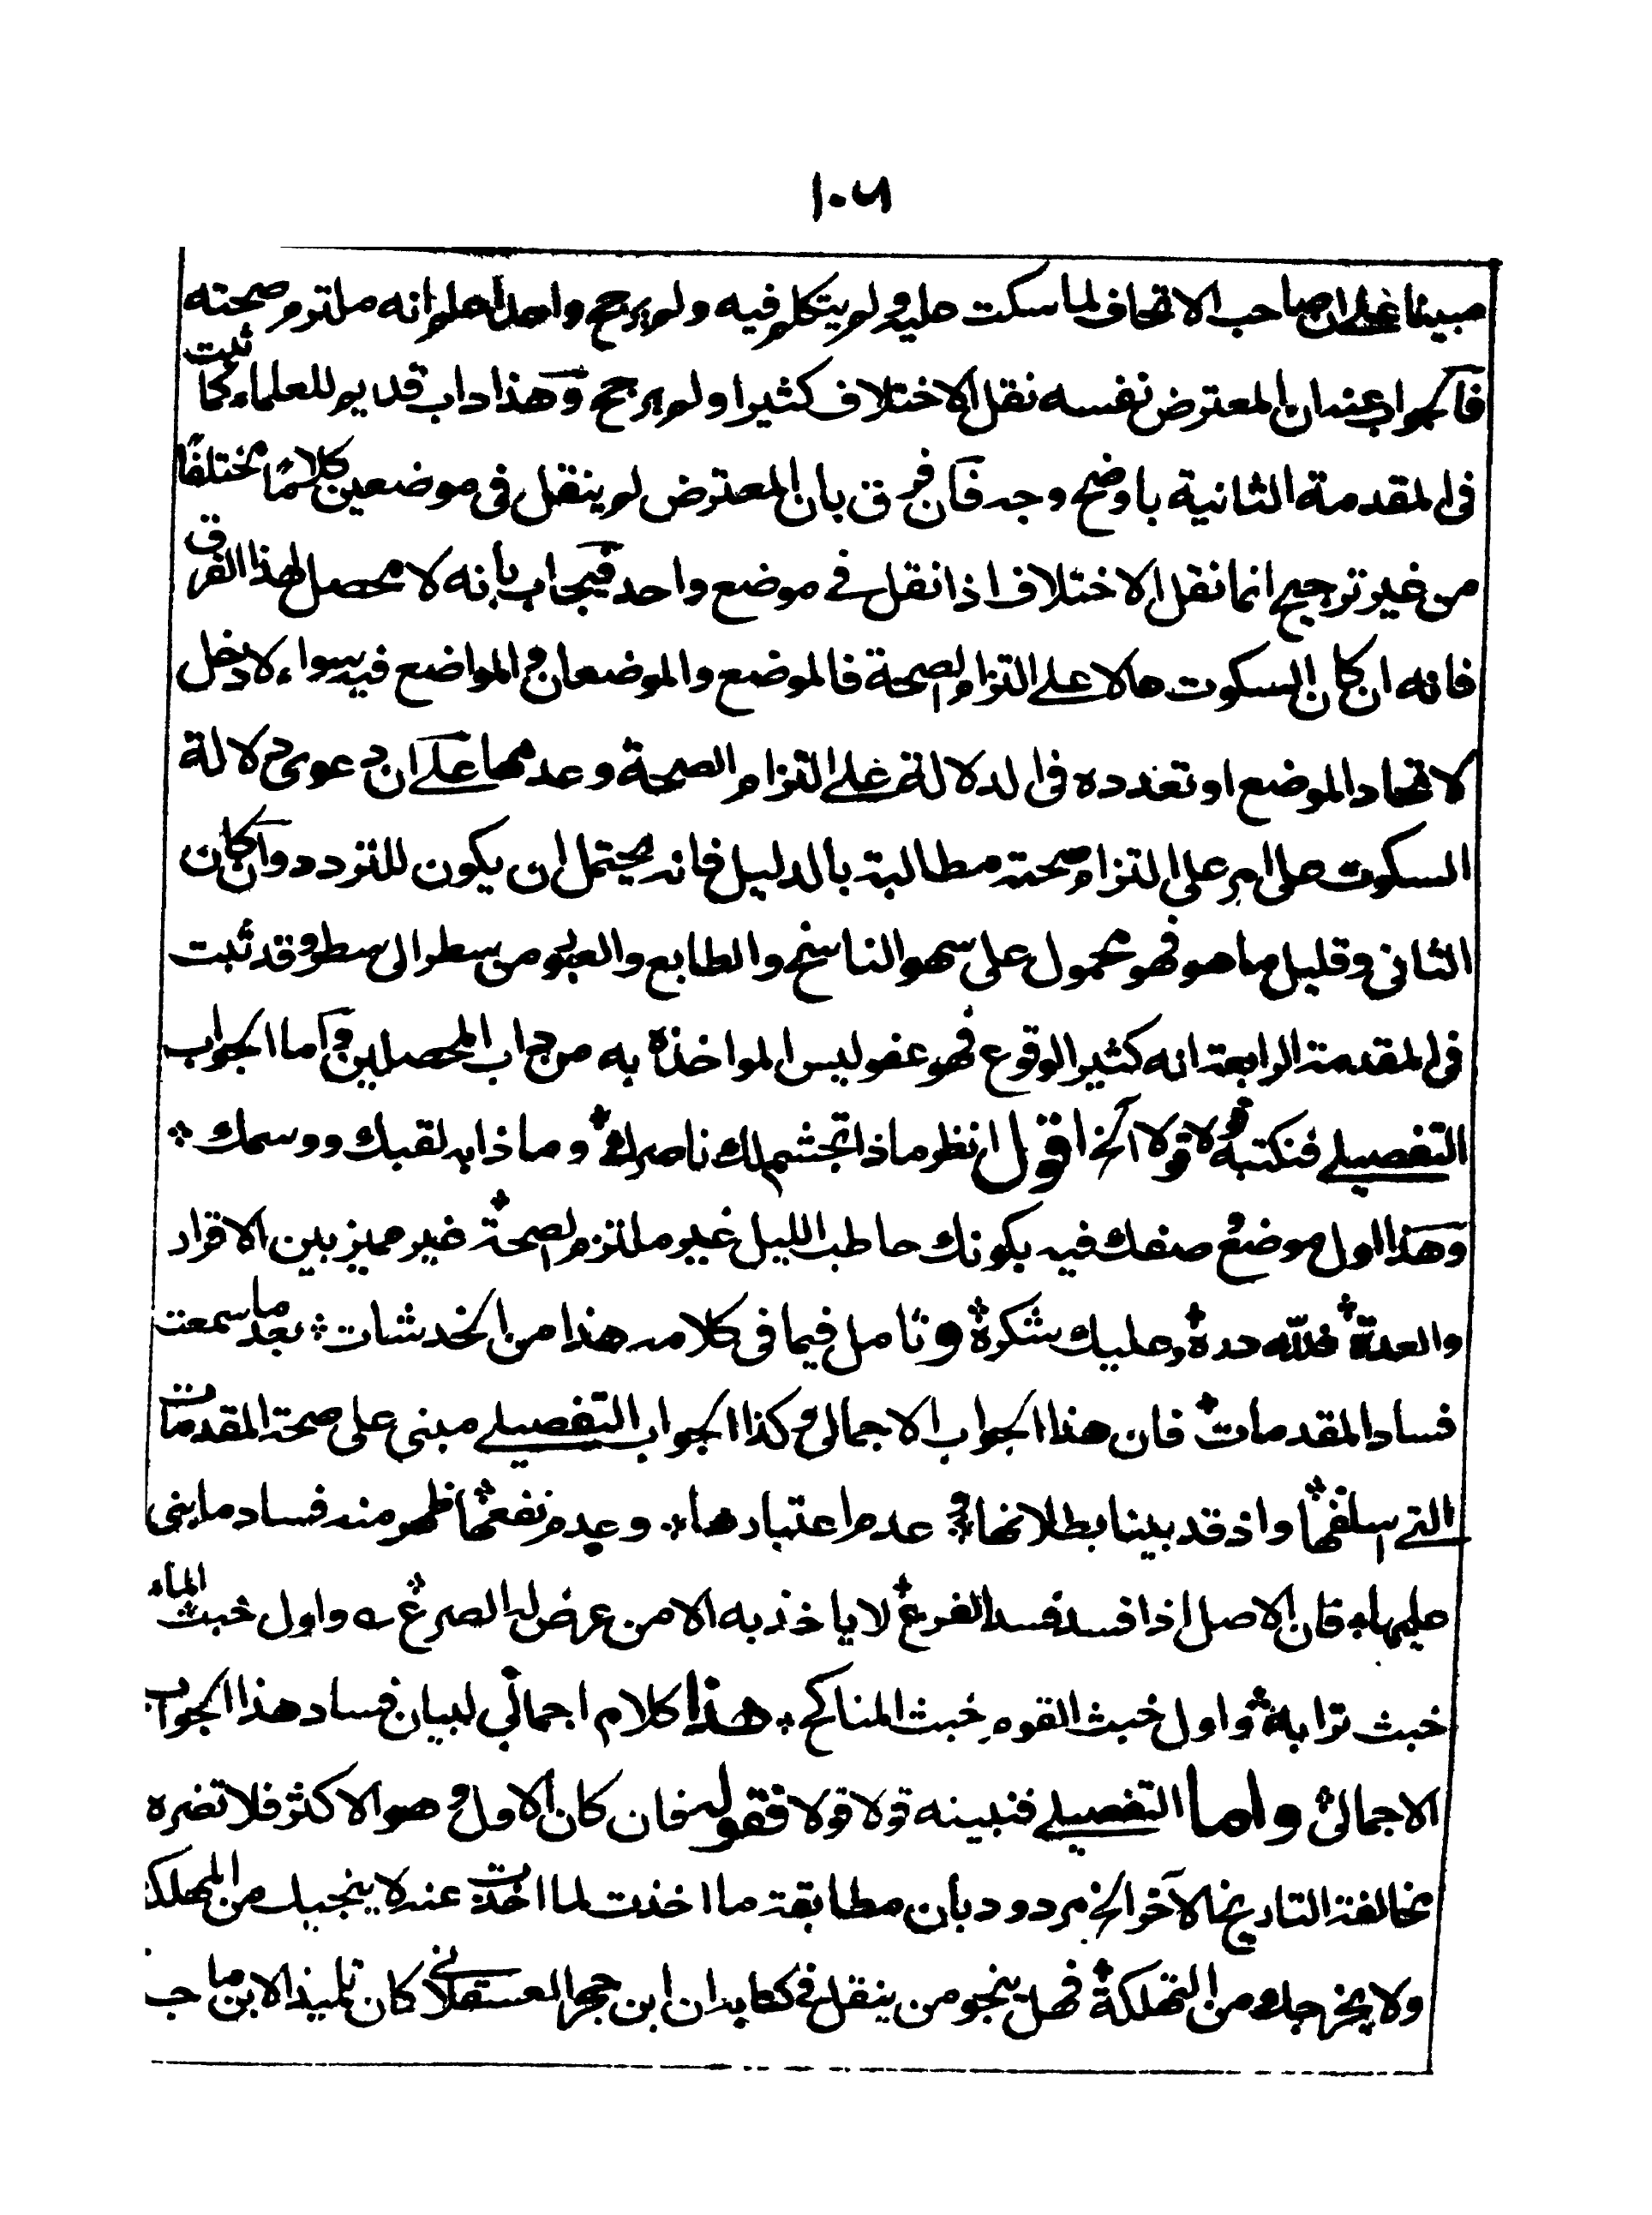 ١٠٦
مبينا على ان صاحب الاتحاف لما سكت عليه ولم يتكلم فيه ولم يرجح واحدا علم انه ملتزم صحته
فالجواب عنه ان المعترض نفسه نقل الاختلاف كثيرا ولم يرجح وهذا داب قديم للعلماء كما ثبت
فى المقدمة الثانية باوضح وجه فان فرق بان المعترض لم ينقل فى موضعين كلاما مختلفا
من غير ترجيح انما نقل الاختلاف اذا نقل فى موضع واحد فيجاب بانه لا محصل لهذا الفرق
فانه ان كان السكوت دالا على التزام الصحة فالموضع والموضعان والمواضع فيه سواء لا دخل
لاتحاد الموضع او تعدده فى الدلالة على التزام الصحة وعدمها على ان دعوى دلالة
السكوت على امر على التزام صحته مطالبة بالدليل فانه يحتمل ان يكون للتردد وان كان
الثانى وقليل ما هو فهو محمول على سهو الناسخ والطابع والعبور من سطر الى سطر وقد ثبت
فى المقدمة الرابعة انه كثير الوقوع فهو عفو ليس المواخذة به من داب المحصلين واما الجواب
التفصيلى فنكتبه قولا قولا الخ اقول انظر ماذا تجشم لك ناصرك وماذا به لقبك ووسمك
وهذا اول موضع صنفك فيه بكونك حاطب الليل غير ملتزم الصحة غير مميز بين الاقرار
والعدة فلله دره وعليك شكره وتامل فيما فى كلامه هذا من الخدشات بعد ما سمعت
فساد المقدمات فان هذا الجواب الاجمالى وكذا الجواب التفصيلى مبنى على صحة المقدمات
التى اسلفها واذ قد بينا بطلانها وعدم اعتبارها وعدم نفعها ظهر منه فساد ما بنى
عليها فان الاصل اذا فسد فسد الفرع لا ياخذ به الا من عرض له الصرع ـه واول خبث الماء
خبث ترابه واول خبث القوم خبث المناكح هذا كلام اجمالى لبيان فساد هذا الجواب
الاجمالى واما التفصيلى فنبينه قولا قولا فقوله فان كان الاول وهو الاكثر فلا تضره
مخالفة التاريخ الآخر الخ مردود بان مطابقة ما اخذت لما اخذت عنه لا ينجيك من المهلكة
ولا يخرجك من التهلكة فهل ينجو من ينقل فى كتابه ان ابن حجر العسقلانى كان تلميذا لابن ماجه